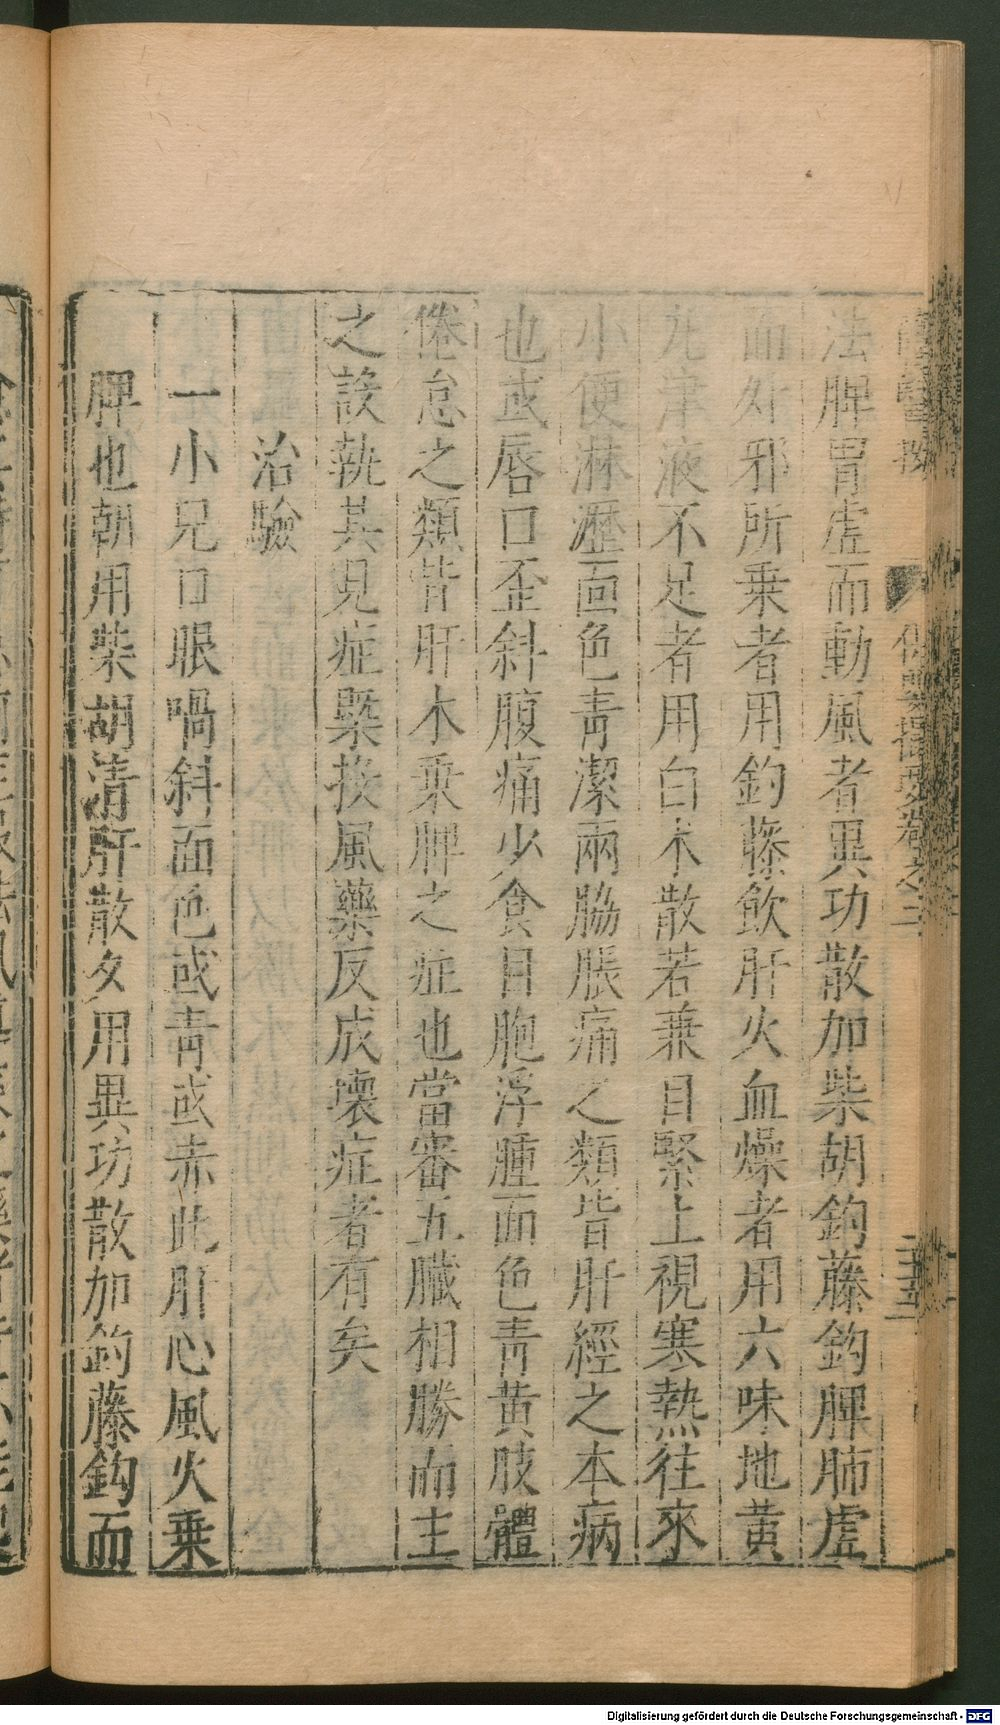 法脾胃虛而動風者異功散加柴胡鈎藤鈎脾肺虛
而外邪所乗者用鈎藤飲肝火血燥者用六味地黄
丸津液不足者用白术散若兼目緊上視寒熱往來
小便淋瀝面色靑潔兩脇脹痛之類皆肝經之本病
也或唇口歪斜腹痛少食目胞浮腫面色靑黄肢體
倦怠之類皆肝木乗脾之症也當審五臟相勝而主
之設執其見症槩投風藥反成壞症者有矣
治驗
一小兒口眼喎斜面色或靑或赤此肝心風火乗
脾也朝用柴胡清肝散夕用異功散加鈎藤鈎而
保嬰撮要卷之二
Digitalisierung gefördert durch die Deutsche Forschungsgemeinschaft - DFG